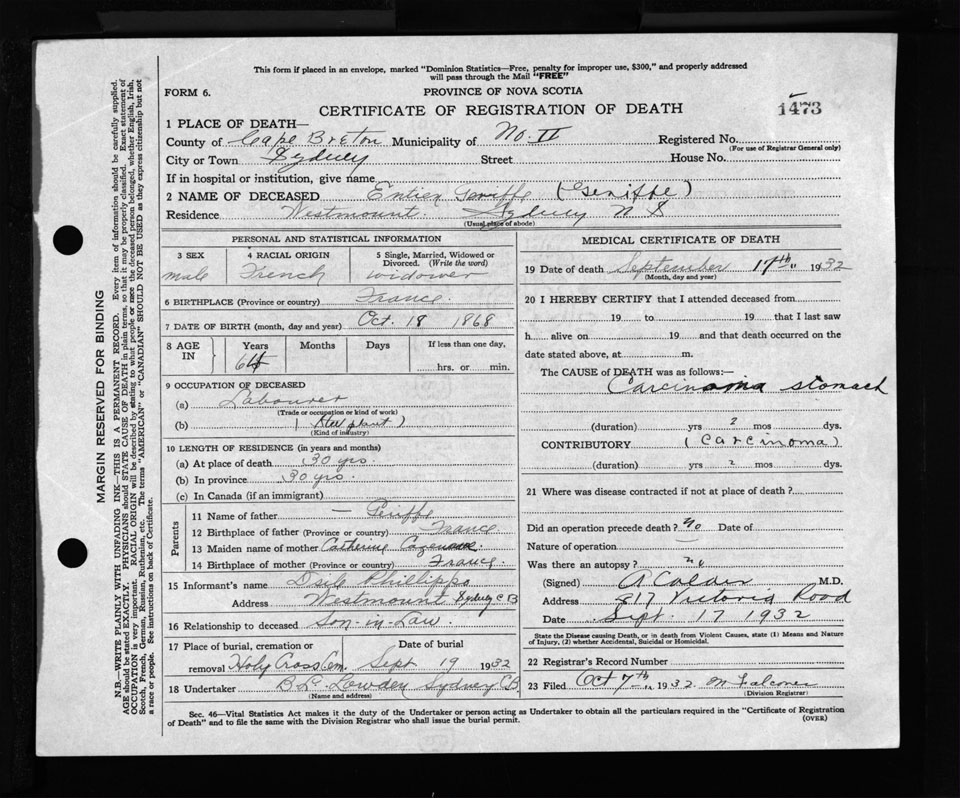 This form if placed in an envelope, marked "Dominion Statistics—Free, penalty for improper use, $300," and properly addressed
will pass through the Mail "FREE"
FORM 6.
PROVINCE OF NOVA SCOTIA
CERTIFICATE OF REGISTRATION OF DEATH
1473
1 PLACE OF DEATH—
County of Cape Breton Municipality of No. II Registered No.
(For use of Registrar General only)
City or Town Sydney Street House No.
If in hospital or institution, give name
2 NAME OF DECEASED Entier Geniffe (Geniffe)
Residence Westmount. Sydney N S
(Usual place of abode)
PERSONAL AND STATISTICAL INFORMATION
3 SEX male
4 RACIAL ORIGIN French
5 Single, Married, Widowed or Divorced. (Write the word) widower
6 BIRTHPLACE (Province or country) France.
7 DATE OF BIRTH (month, day and year) Oct. 18 1868
8 AGE IN Years Months Days If less than one day,
64 hrs. or min.
9 OCCUPATION OF DECEASED
(a) Labourer
(Trade or occupation or kind of work)
(b) (Steel plant)
(Kind of industry)
10 LENGTH OF RESIDENCE (in years and months)
(a) At place of death 30 yrs.
(b) In province 30 yrs.
(c) In Canada (if an immigrant)
Parents
11 Name of father —
12 Birthplace of father (Province or country) France
13 Maiden name of mother Catherine
14 Birthplace of mother (Province or country) France
15 Informant's name Phillipps
Address Westmount Sydney C B
16 Relationship to deceased Son-in-Law.
17 Place of burial, cremation or removal Date of burial
Holy Cross Cem. Sept 19 1932
18 Undertaker B. L. Lowden Sydney CB
(Name and address)
MEDICAL CERTIFICATE OF DEATH
19 Date of death September 17th 1932
(Month, day and year)
20 I HEREBY CERTIFY that I attended deceased from
19 to 19 that I last saw
h alive on 19 and that death occurred on the
date stated above, at m.
The CAUSE of DEATH was as follows:—
Carcinoma stomach
(duration) yrs 2 mos dys.
CONTRIBUTORY (Carcinoma)
(duration) yrs 2 mos dys.
21 Where was disease contracted if not at place of death?
Did an operation precede death? No Date of
Nature of operation
Was there an autopsy? no
(Signed) A Calder M.D.
Address 317 Victoria Road
Date Sept. 17 1932
State the Disease causing Death, or in death from Violent Causes, state (1) Means and Nature
of Injury, (2) whether Accidental, Suicidal or Homicidal.
22 Registrar's Record Number
23 Filed Oct 7th 1932. M Falconer
(Division Registrar)
Sec. 46—Vital Statistics Act makes it the duty of the Undertaker or person acting as Undertaker to obtain all the particulars required in the "Certificate of Registration
of Death" and to file the same with the Division Registrar who shall issue the burial permit.
(OVER)
MARGIN RESERVED FOR BINDING
N.B.—WRITE PLAINLY WITH UNFADING INK—THIS IS A PERMANENT RECORD. Every item of information should be carefully supplied.
AGE should be stated EXACTLY. PHYSICIANS should STATE CAUSE OF DEATH in plain terms, so that it may be properly classified. Exact statement of
OCCUPATION is very important. RACIAL ORIGIN will be described by stating to what people or race the deceased person belonged, whether English, Irish,
Scotch, French, German, Russian, Ruthenian, etc. The terms "AMERICAN" or "CANADIAN" SHOULD NOT BE USED as they express citizenship but not
a race or people. See instructions on back of Certificate.